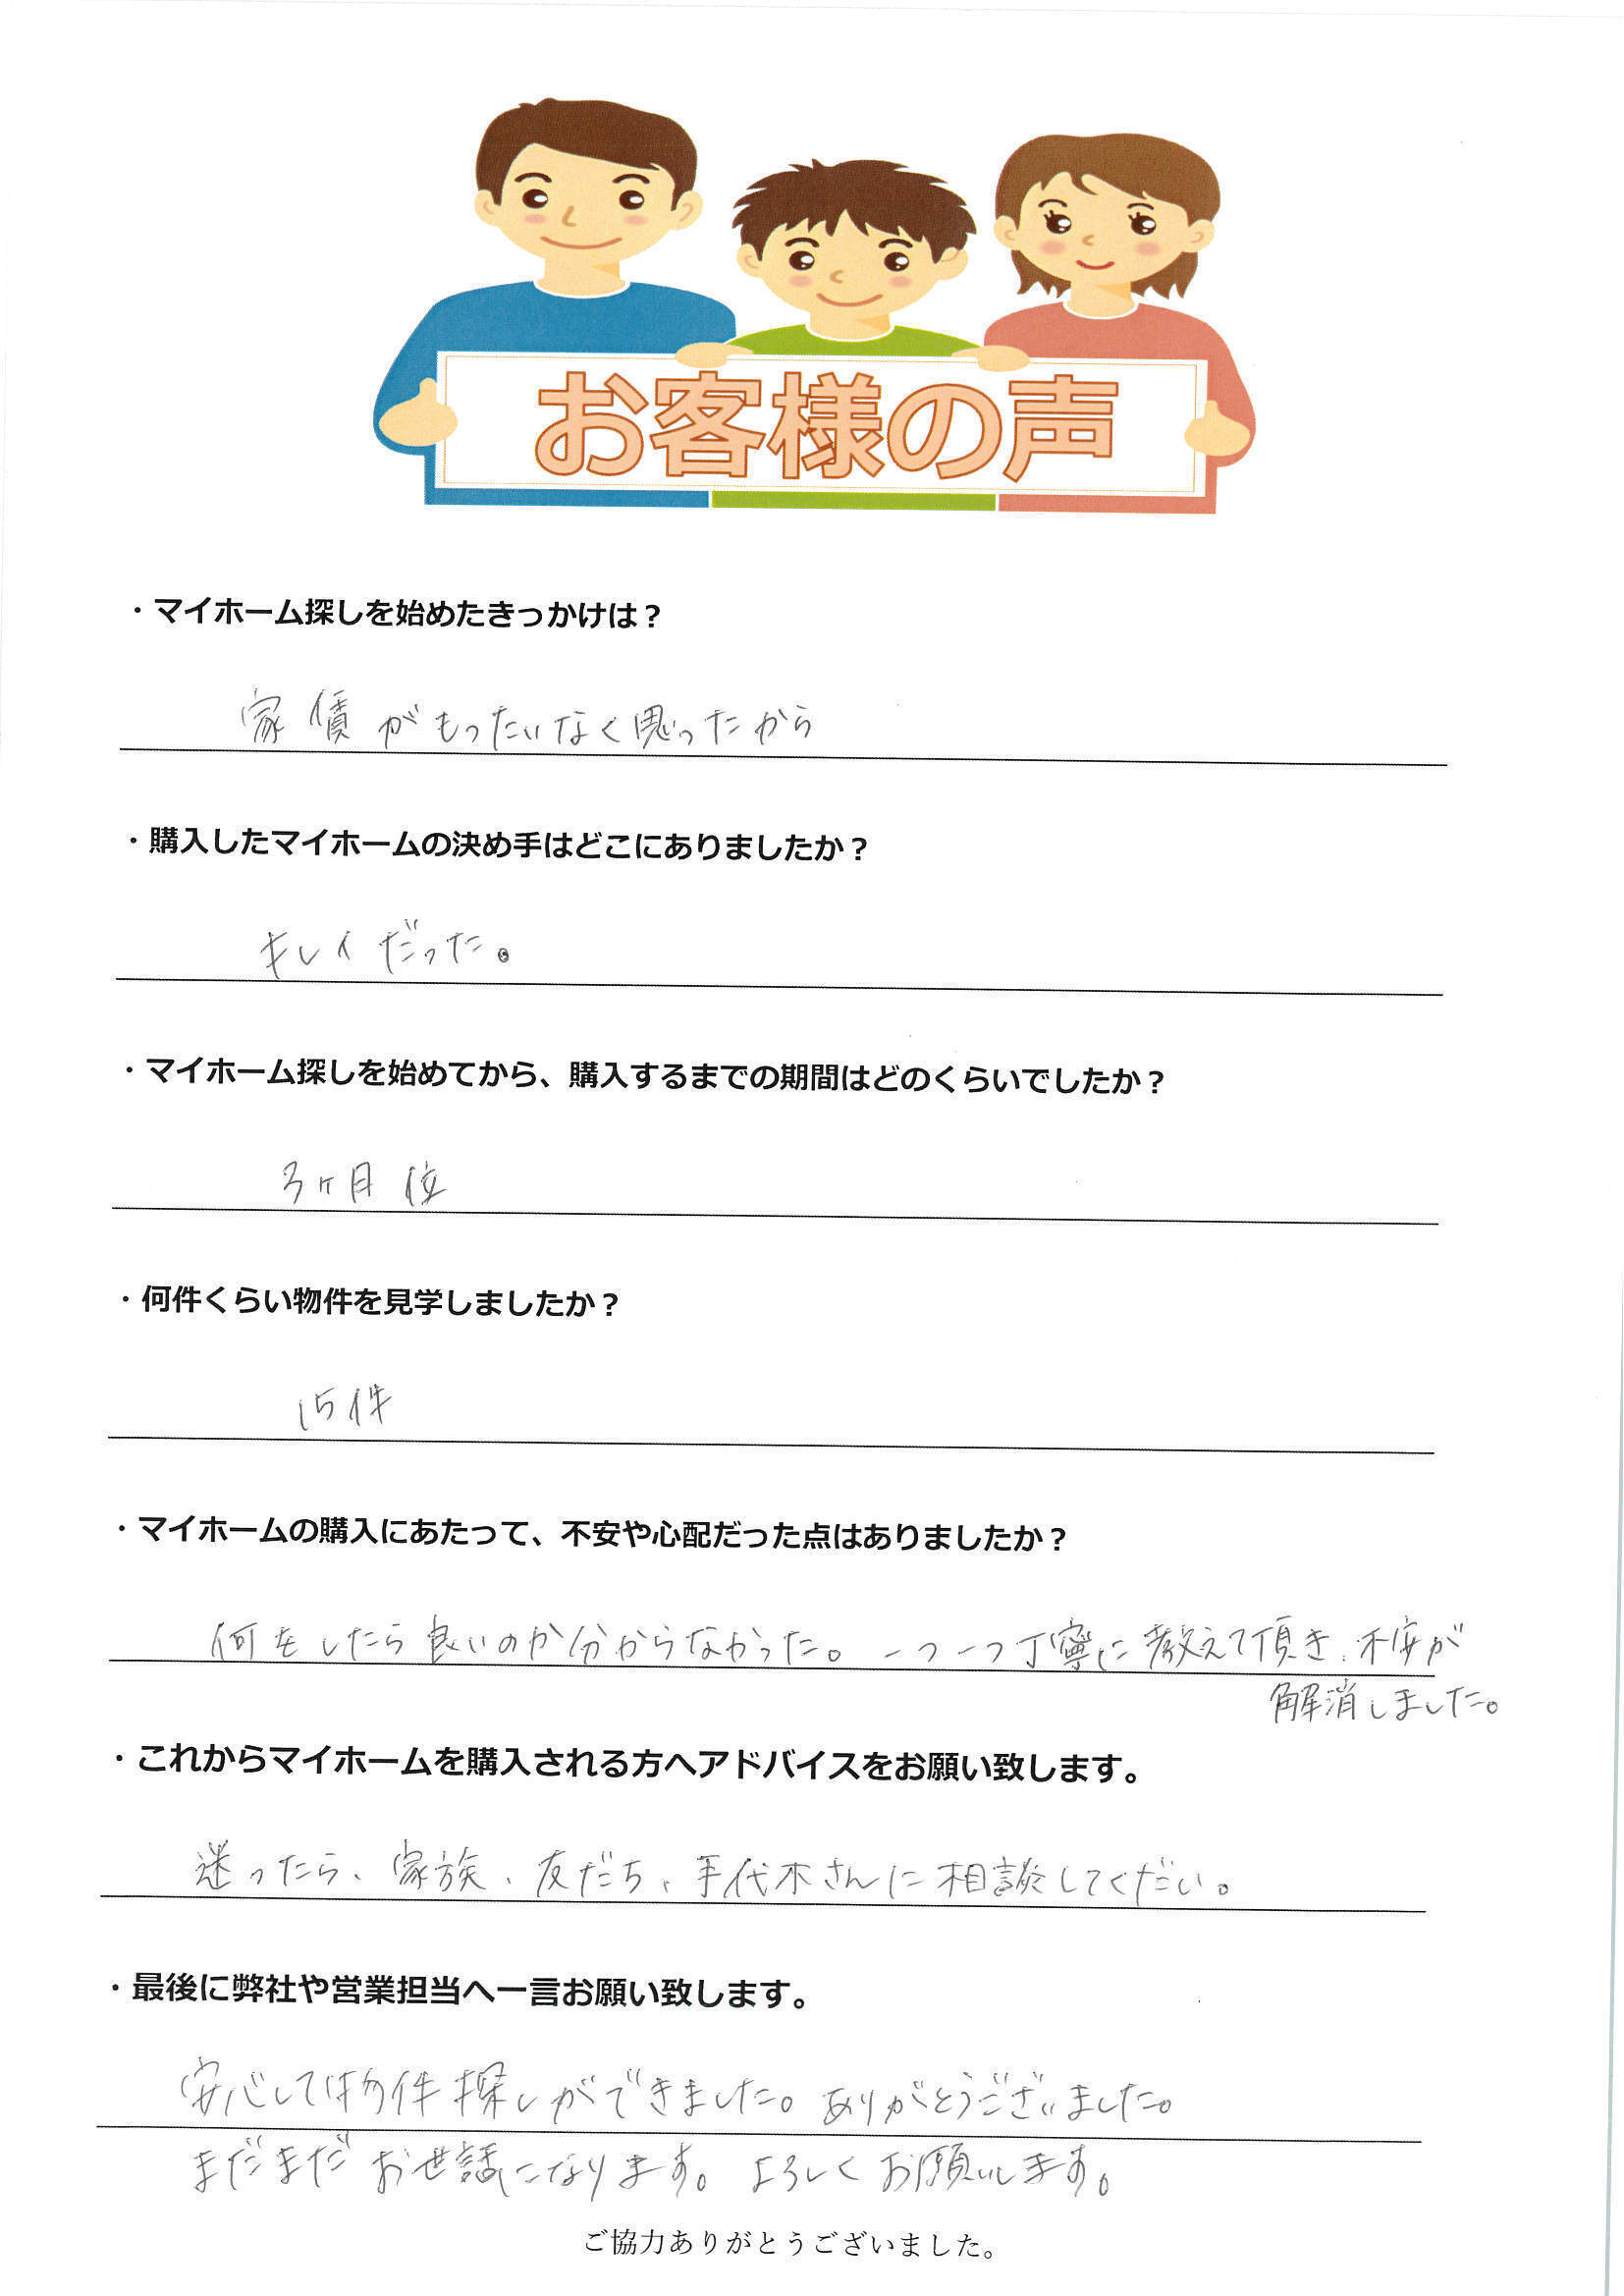 お客様の声
・マイホーム探しを始めたきっかけは？
家賃がもったいなく思ったから
・購入したマイホームの決め手はどこにありましたか？
キレイだった。
・マイホーム探しを始めてから、購入するまでの期間はどのくらいでしたか？
3ヶ月位
・何件くらい物件を見学しましたか？
15件
・マイホームの購入にあたって、不安や心配だった点はありましたか？
何をしたら良いのか分からなかった。一つ一つ丁寧に教えて頂き、不安が
解消しました。
・これからマイホームを購入される方へアドバイスをお願い致します。
迷ったら、家族、友だち、手代木さんに相談してくだい。
・最後に弊社や営業担当へ一言お願い致します。
安心して物件探しができました。ありがとうございました。
まだまだお世話になります。よろしくお願いします。
ご協力ありがとうございました。